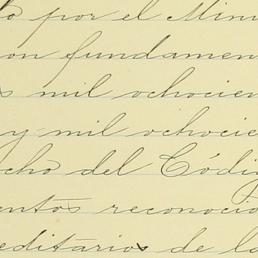 por el Min
on fundamen
s mil ochocien
y mil ochocie
cho del Códig
entos reconocio
editarios de la